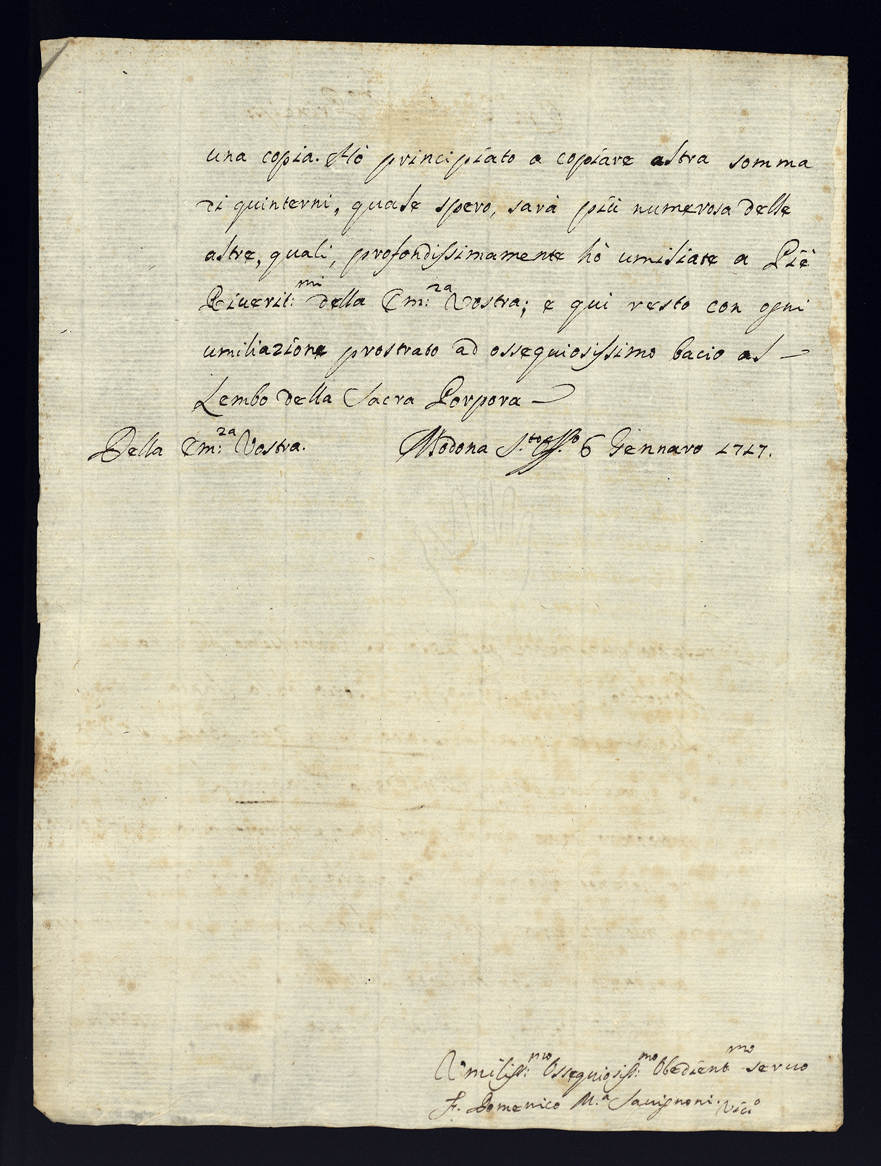 una copia. Hò principiato a copiare altra somma
di quinterni, quale spero, sarà più numerosa delle
altre, quali, profondissimamente hò umiliate a Piè
Riverit:mi della Em:za Vostra; e qui resto con ogni
umiliazione prostrato ad ossequiosissimo bacio al
Lembo della Sacra Porpora
Della Em:za Vostra. Modona 6 Gennaro 1717.
Umiliss:mo Ossequiosiss:mo Obedientmo servo
F. Domenico M.a Savignoni. Vicio